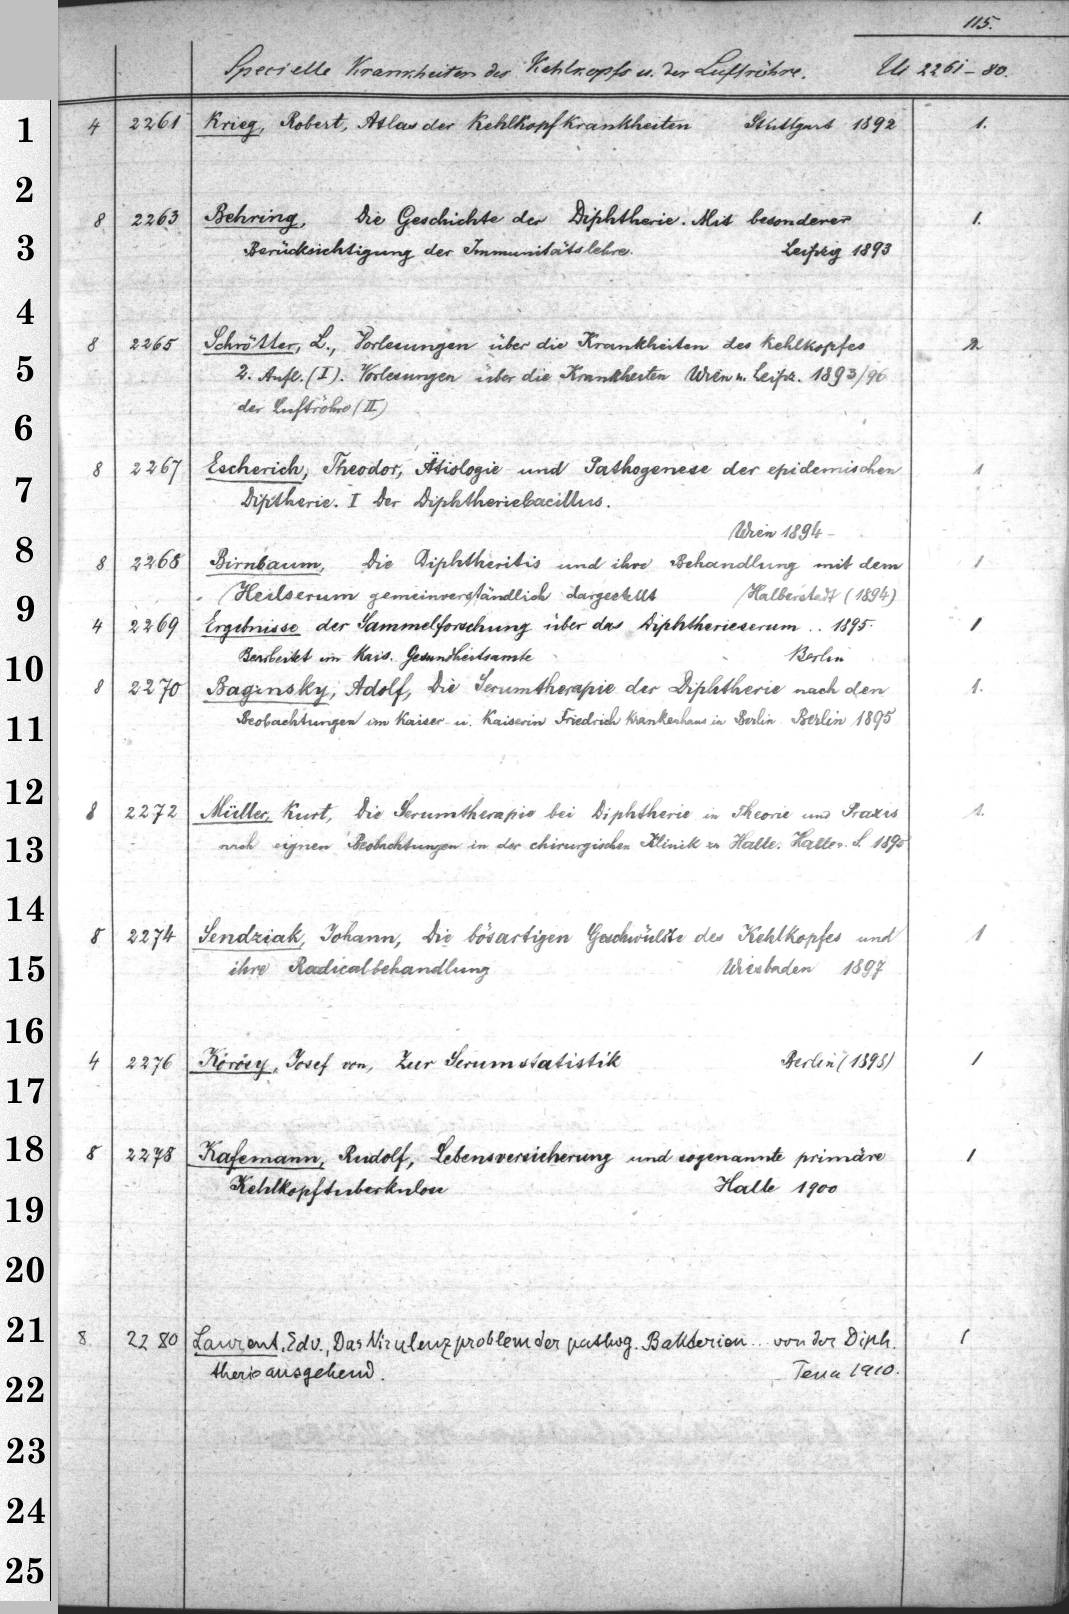 115.
Specielle Krankheiten des Kehlkopfs u. der Luftröhre. Us 2261-80.
1 4 2261 Krieg, Robert, Atlas der Kehlkopfkrankheiten Stuttgart 1892 1.
2
8 2263 Behring, Die Geschichte der Diphtherie. Mit besonderer 1.
3 Berücksichtigung der Immunitätslehre. Leipzig 1893
4
8 2265 Schrötter, L., Vorlesungen über die Krankheiten des Kehlkopfes 2.
5 2. Aufl. (I). Vorlesungen über die Krankheiten Wien u. Leipz. 1893/96
der Luftröhre (II)
6
8 2267 Escherich, Theodor, Ätiologie und Pathogenese der epidemischen 1
7 Diptherie. I Der Diphtheriebacillus.
Wien 1894-
8 8 2268 Birnbaum, Die Diphtheritis und ihre Behandlung mit dem 1
9 Heilserum gemeinverständlich dargestellt Halberstadt (1894)
4 2269 Ergebnisse der Sammelforschung über das Diphtherieserum .. 1895. 1
10 Bearbeitet im Kais. Gesundheitsamte Berlin
8 2270 Baginsky, Adolf, Die Serumtherapie der Diphtherie nach den 1.
11 Beobachtungen im Kaiser- u. Kaiserin Friedrich Krankenhaus in Berlin Berlin 1895
12
8 2272 Müller, Kurt, Die Serumtherapie bei Diphtherie in Theorie und Praxis 1.
13 nach eignen Beobachtungen in der chirurgischen Klinik zu Halle. Halle a. S. 1895
14
8 2274 Sendziak, Johann, Die bösartigen Geschwülste des Kehlkopfes und 1
15 ihre Radicalbehandlung Wiesbaden 1897
16
4 2276 Körösy, Josef von, Zur Serumstatistik Berlin (1898) 1
17
18 8 2278 Kafemann, Rudolf, Lebensversicherung und sogenannte primäre 1
19 Kehlkopftuberkulose Halle 1900
20
21 8 2280 Laurent, Edv., Das Virulenzproblem der pathog. Bakterien... von der Diph. 1
22 therie ausgehend. Jena 1910.
23
24
25